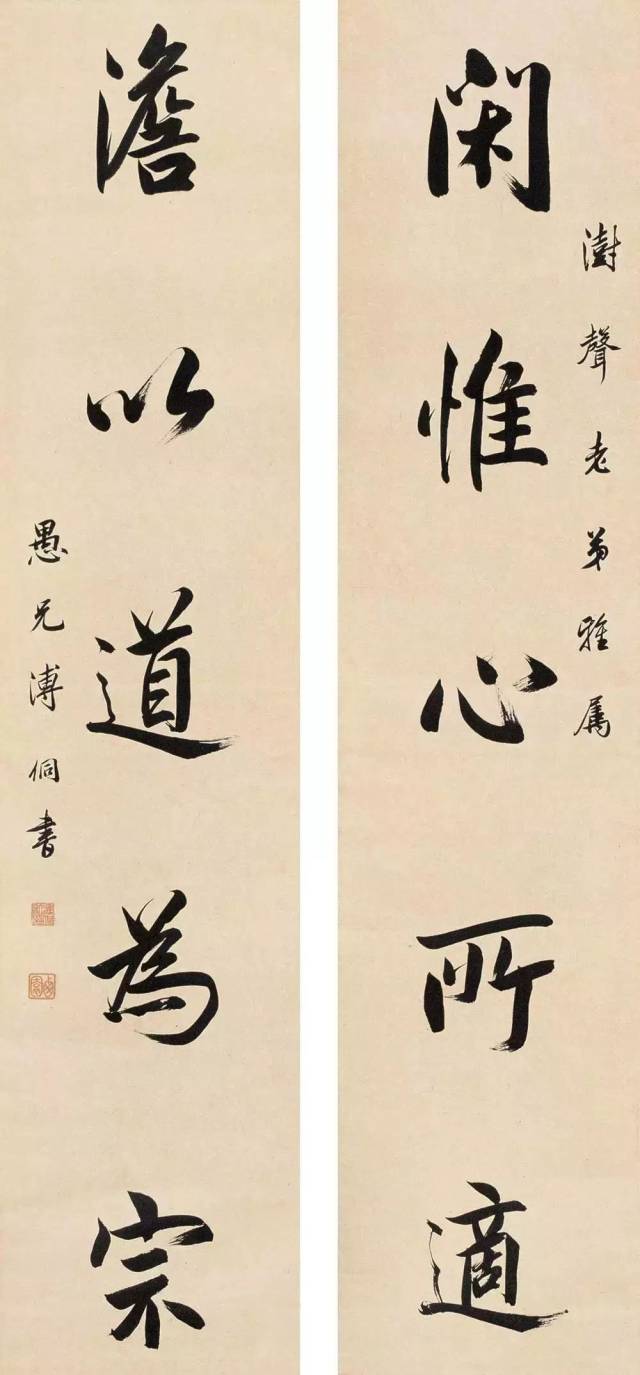 澍聲老弟雅屬
閑惟心所適
澹以道為宗
愚兄溥侗書